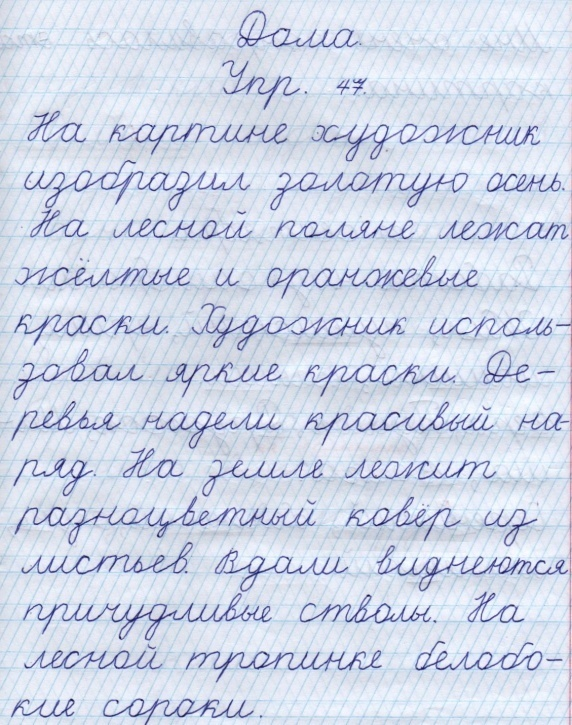 Дома.
Упр. 47.
На картине художник
изобразил золотую осень.
На лесной поляне лежат
жёлтые и оранжевые
краски. Художник исполь-
зовал яркие краски. Де-
ревья надели красивый на-
ряд. На земле лежит
разноцветный ковёр из
листьев. Вдали виднеются
причудливые стволы. На
лесной тропинке белобо-
кие сороки.